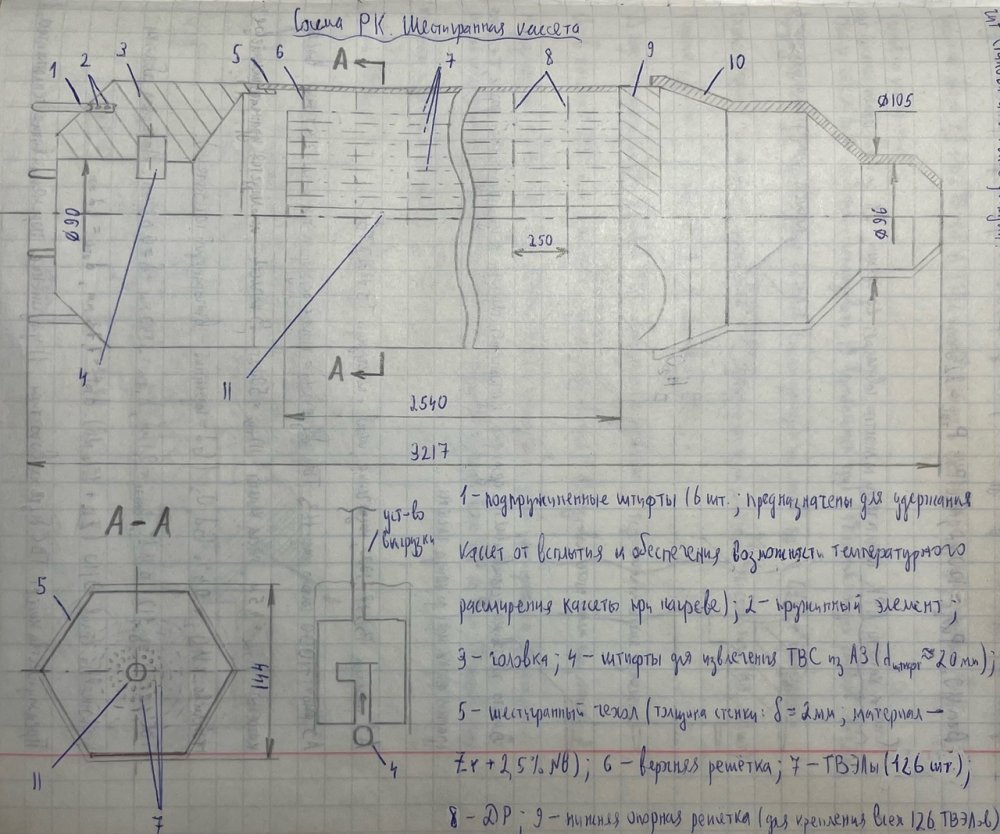 Схема РК. Шестигранная кассета
1
2
3
5
6
А
7
8
9
10
Ø105
Ø90
Ø96
250
4
11
А
2540
3217
А-А
уст-во
выгрузки
5
144
11
7
4
1 - подпружиненные штифты (6 шт.; предназначены для удержания
кассет от всплытия и обеспечения возможности температурного
расширения кассеты при нагреве); 2 - пружинный элемент;
3 - головка; 4 - штифты для извлечения ТВС из АЗ (dштифт ≈ 20 мм);
5 - шестигранный чехол (толщина стенки: δ = 2мм; материал -
Zr + 2,5% Nb); 6 - верхняя решётка; 7 - ТВЭЛы (126 шт.);
8 - ДР; 9 - нижняя опорная решётка (для крепления всех 126 ТВЭЛов)